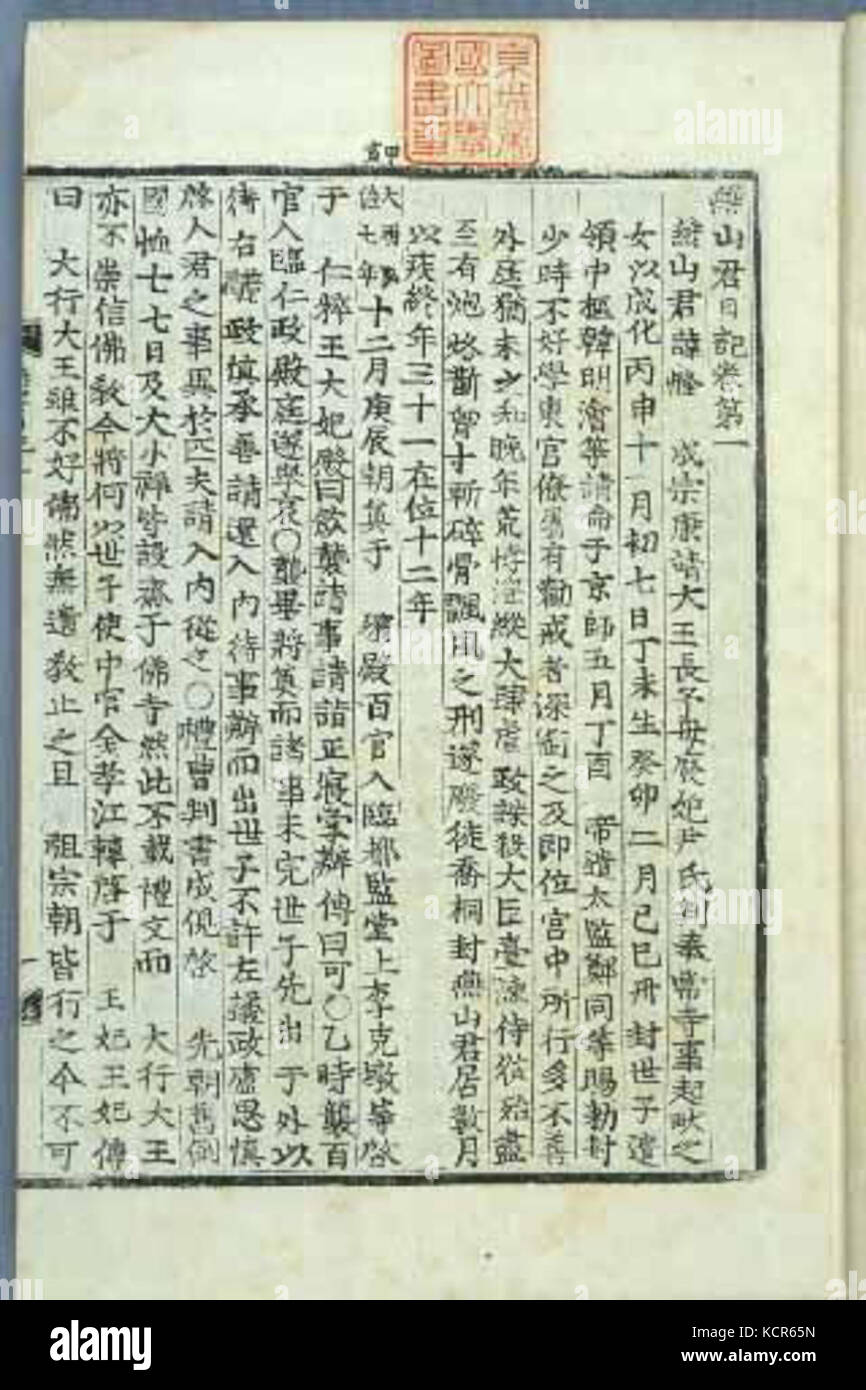 燕山君日記卷第一
燕山君諱㦕 成宗康靖大王長子母廢妃尹氏判奉常寺事起畎之
女以成化丙申十一月初七日丁未生癸卯二月己巳冊封世子遣
領中樞韓明澮等請命于京師五月丁酉 帝遣太監鄭同等賜勅封
少時不好學東宮僚屬有勸戒者深銜之及即位宮中所行多不善
外庭猶未之知晚年荒悖淫縱大肆虐政誅殺大臣臺諫侍從殆盡
至有炮烙斮胷寸斬碎骨飄風之刑遂廢徙喬桐封燕山君居數月
以疾終年三十一在位十二年
甲寅
大明弘治七年十二月庚辰朝奠于 殯殿百官入臨都監堂上李克墩等啓
于 仁粹王大妃殿曰欲襲諸事請詣正寢掌辦傳曰可○乙時襲百
官入臨仁政殿庭遂擧哀○襲畢將奠而諸事未完世子先出于外以
待右議政愼承善請還入內待事辦而出世子不許左議政盧思愼
啓人君之事異於匹夫請入內從之○禮曹判書成俔啓 先朝舊例
國恤七七日及大小祥皆設齋于佛寺然此不載禮文而 大行大王
亦不崇信佛敎今將何以世子使中官金孝江轉啓于 王妃王妃傳
曰 大行大王雖不好佛然無遺敎止之且 祖宗朝皆行之今不可
alamy
Image ID: KCR65N
www.alamy.com